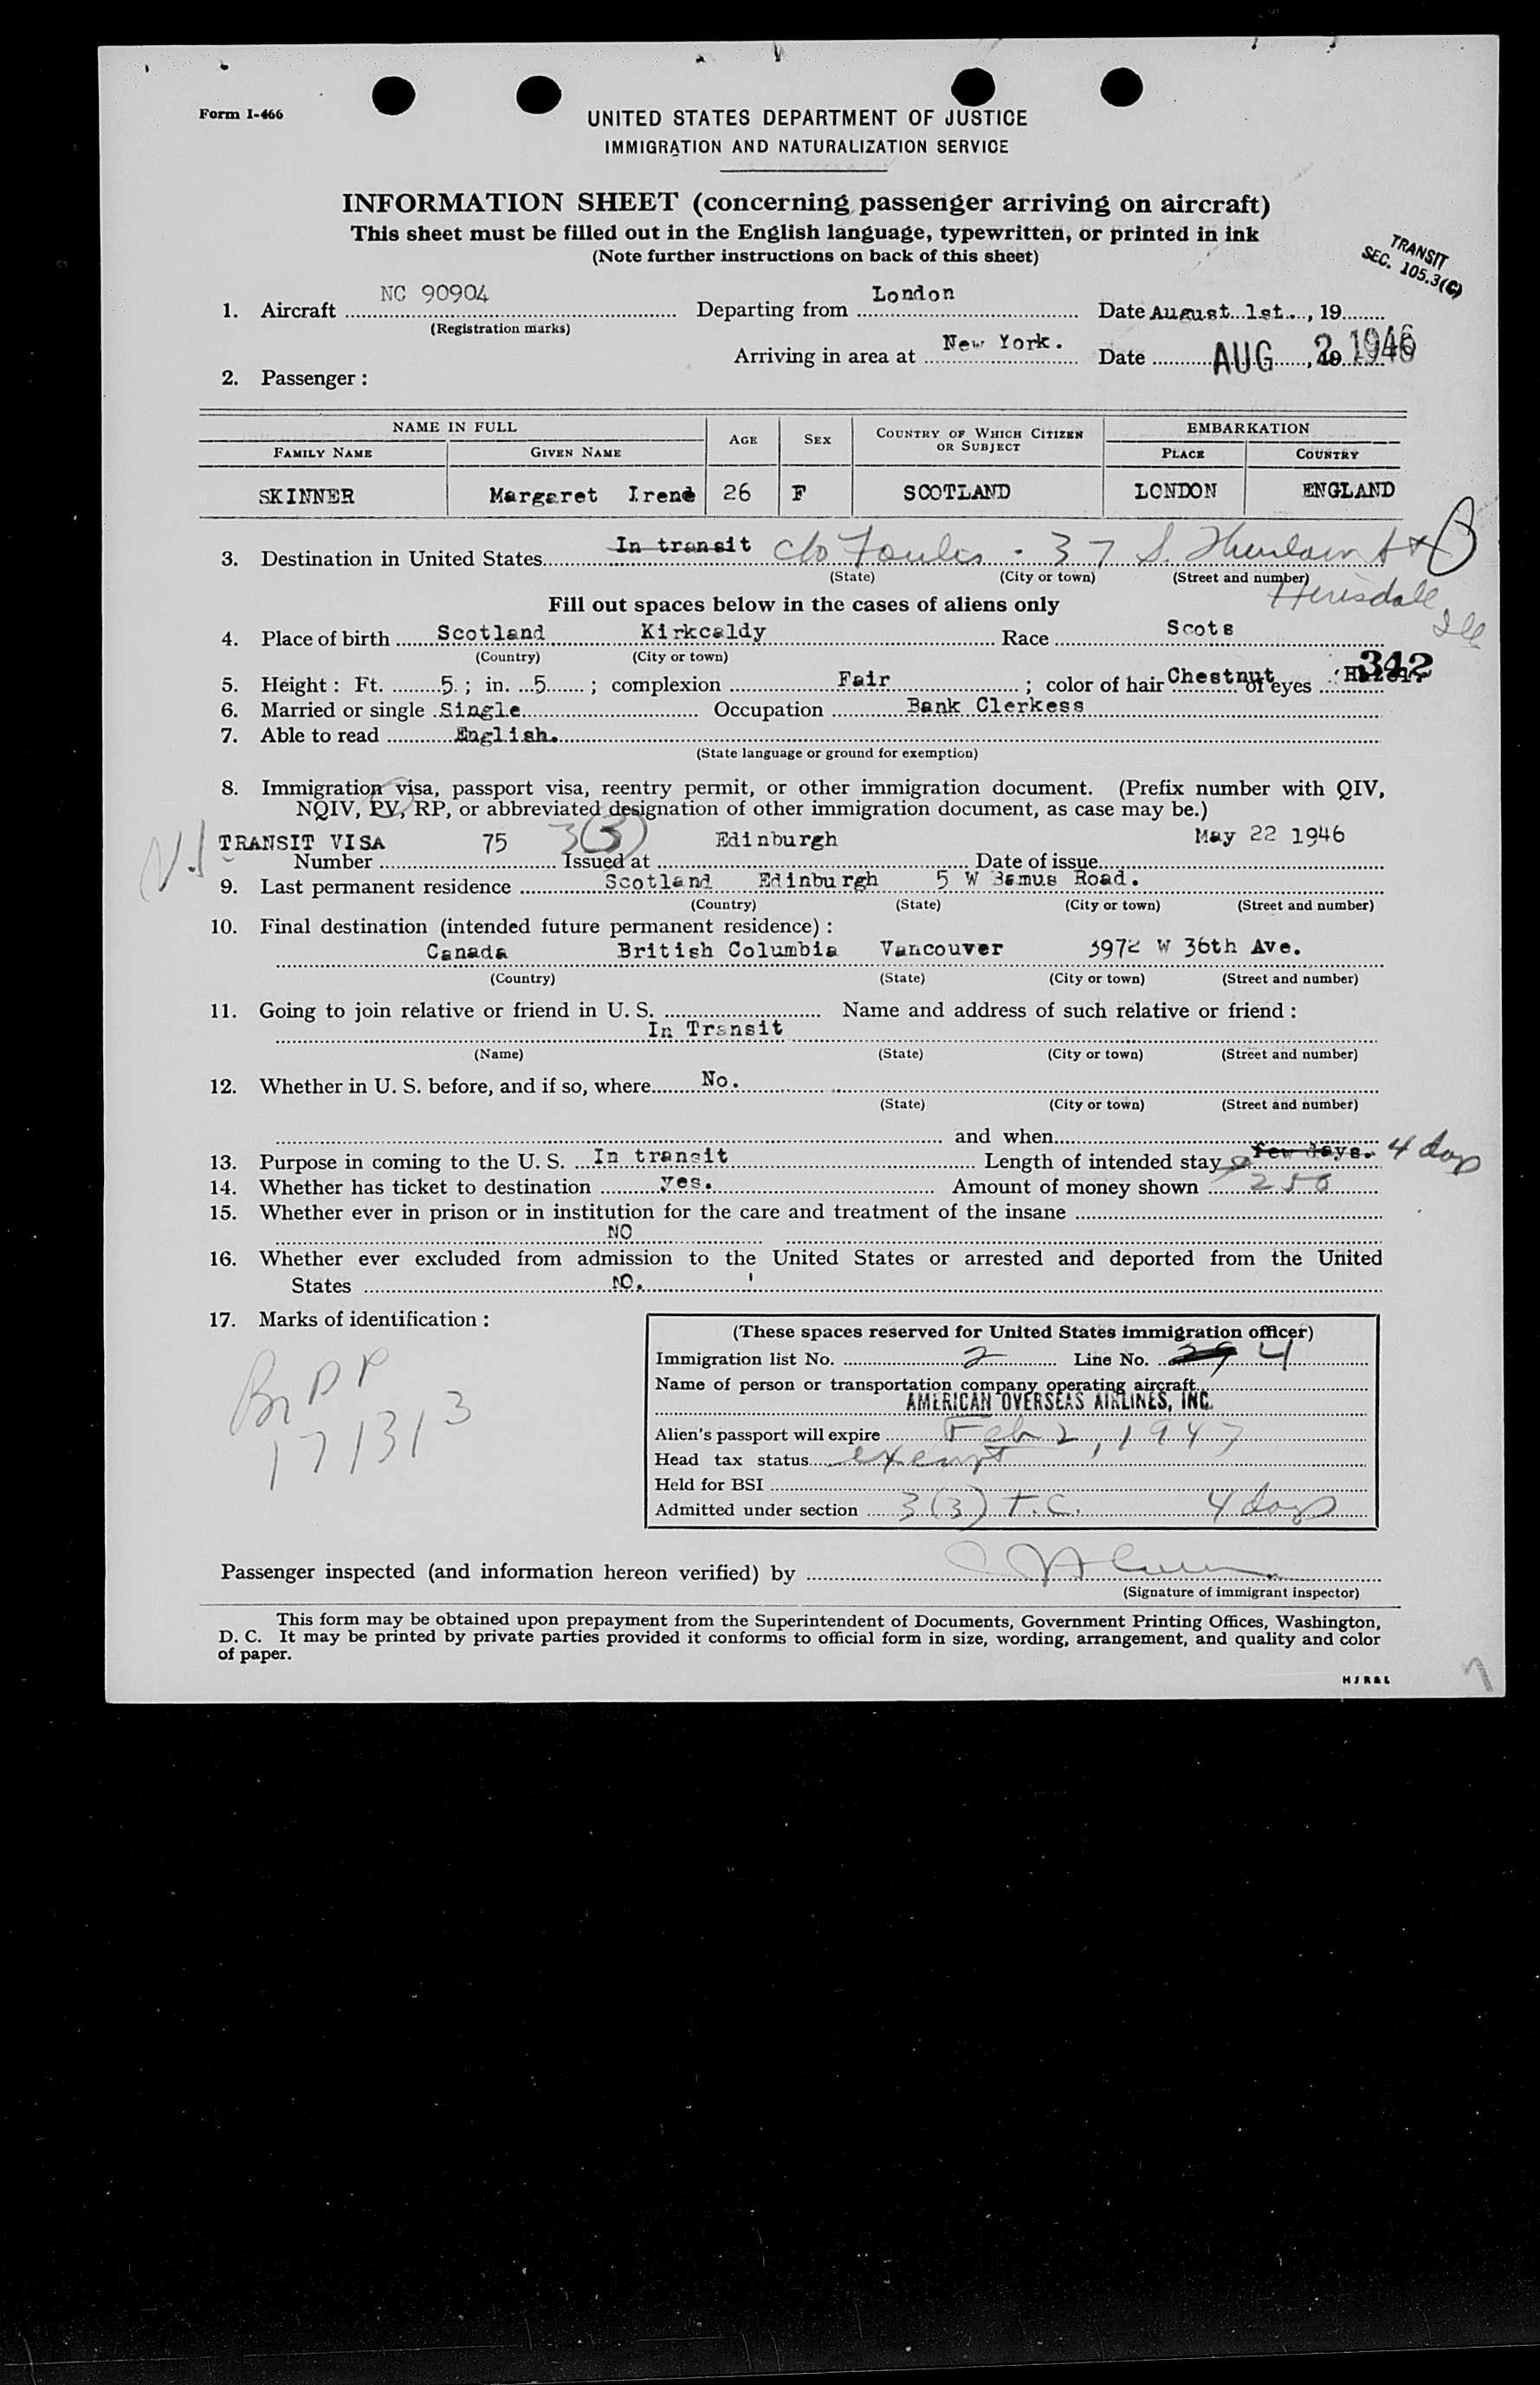 Form I-466
UNITED STATES DEPARTMENT OF JUSTICE
IMMIGRATION AND NATURALIZATION SERVICE
INFORMATION SHEET (concerning passenger arriving on aircraft)
This sheet must be filled out in the English language, typewritten, or printed in ink
(Note further instructions on back of this sheet)
TRANSIT
SEC. 105.3(C)
1. Aircraft NC 90904 Departing from London Date August 1st, 19
(Registration marks)
Arriving in area at New York. Date AUG 2, 1946
2. Passenger :
NAME IN FULL AGE SEX COUNTRY OF WHICH CITIZEN OR SUBJECT EMBARKATION
FAMILY NAME GIVEN NAME PLACE COUNTRY
SKINNER Margaret Irene 26 F SCOTLAND LONDON ENGLAND
3. Destination in United States In transit c/o Foulis - 37 S.
(State) (City or town) (Street and number)
Ill
Fill out spaces below in the cases of aliens only
4. Place of birth Scotland Kirkcaldy Race Scots
(Country) (City or town)
342
5. Height : Ft. 5 ; in. 5 ; complexion Fair ; color of hair Chestnut of eyes
6. Married or single Single Occupation Bank Clerkess
7. Able to read English.
(State language or ground for exemption)
8. Immigration visa, passport visa, reentry permit, or other immigration document. (Prefix number with QIV,
NQIV, PV, RP, or abbreviated designation of other immigration document, as case may be.)
TRANSIT VISA 75 3(3) Edinburgh May 22 1946
Number Issued at Date of issue
9. Last permanent residence Scotland Edinburgh 5 W Bamus Road.
(Country) (State) (City or town) (Street and number)
10. Final destination (intended future permanent residence) :
Canada British Columbia Vancouver 3972 W 36th Ave.
(Country) (State) (City or town) (Street and number)
11. Going to join relative or friend in U. S. Name and address of such relative or friend :
In Transit
(Name) (State) (City or town) (Street and number)
12. Whether in U. S. before, and if so, where No.
(State) (City or town) (Street and number)
and when
13. Purpose in coming to the U. S. In transit Length of intended stay few days. 4 days
14. Whether has ticket to destination yes. Amount of money shown 250
15. Whether ever in prison or in institution for the care and treatment of the insane
NO
16. Whether ever excluded from admission to the United States or arrested and deported from the United
States NO.
17. Marks of identification :
Br PP
171313
(These spaces reserved for United States immigration officer)
Immigration list No. 2 Line No. 4
Name of person or transportation company operating aircraft
AMERICAN OVERSEAS AIRLINES, INC.
Alien's passport will expire Feb 2, 1947
Head tax status exempt
Held for BSI
Admitted under section 3(3) T.C. 4 days
Passenger inspected (and information hereon verified) by
(Signature of immigrant inspector)
This form may be obtained upon prepayment from the Superintendent of Documents, Government Printing Offices, Washington,
D. C. It may be printed by private parties provided it conforms to official form in size, wording, arrangement, and quality and color
of paper.
H J R & L